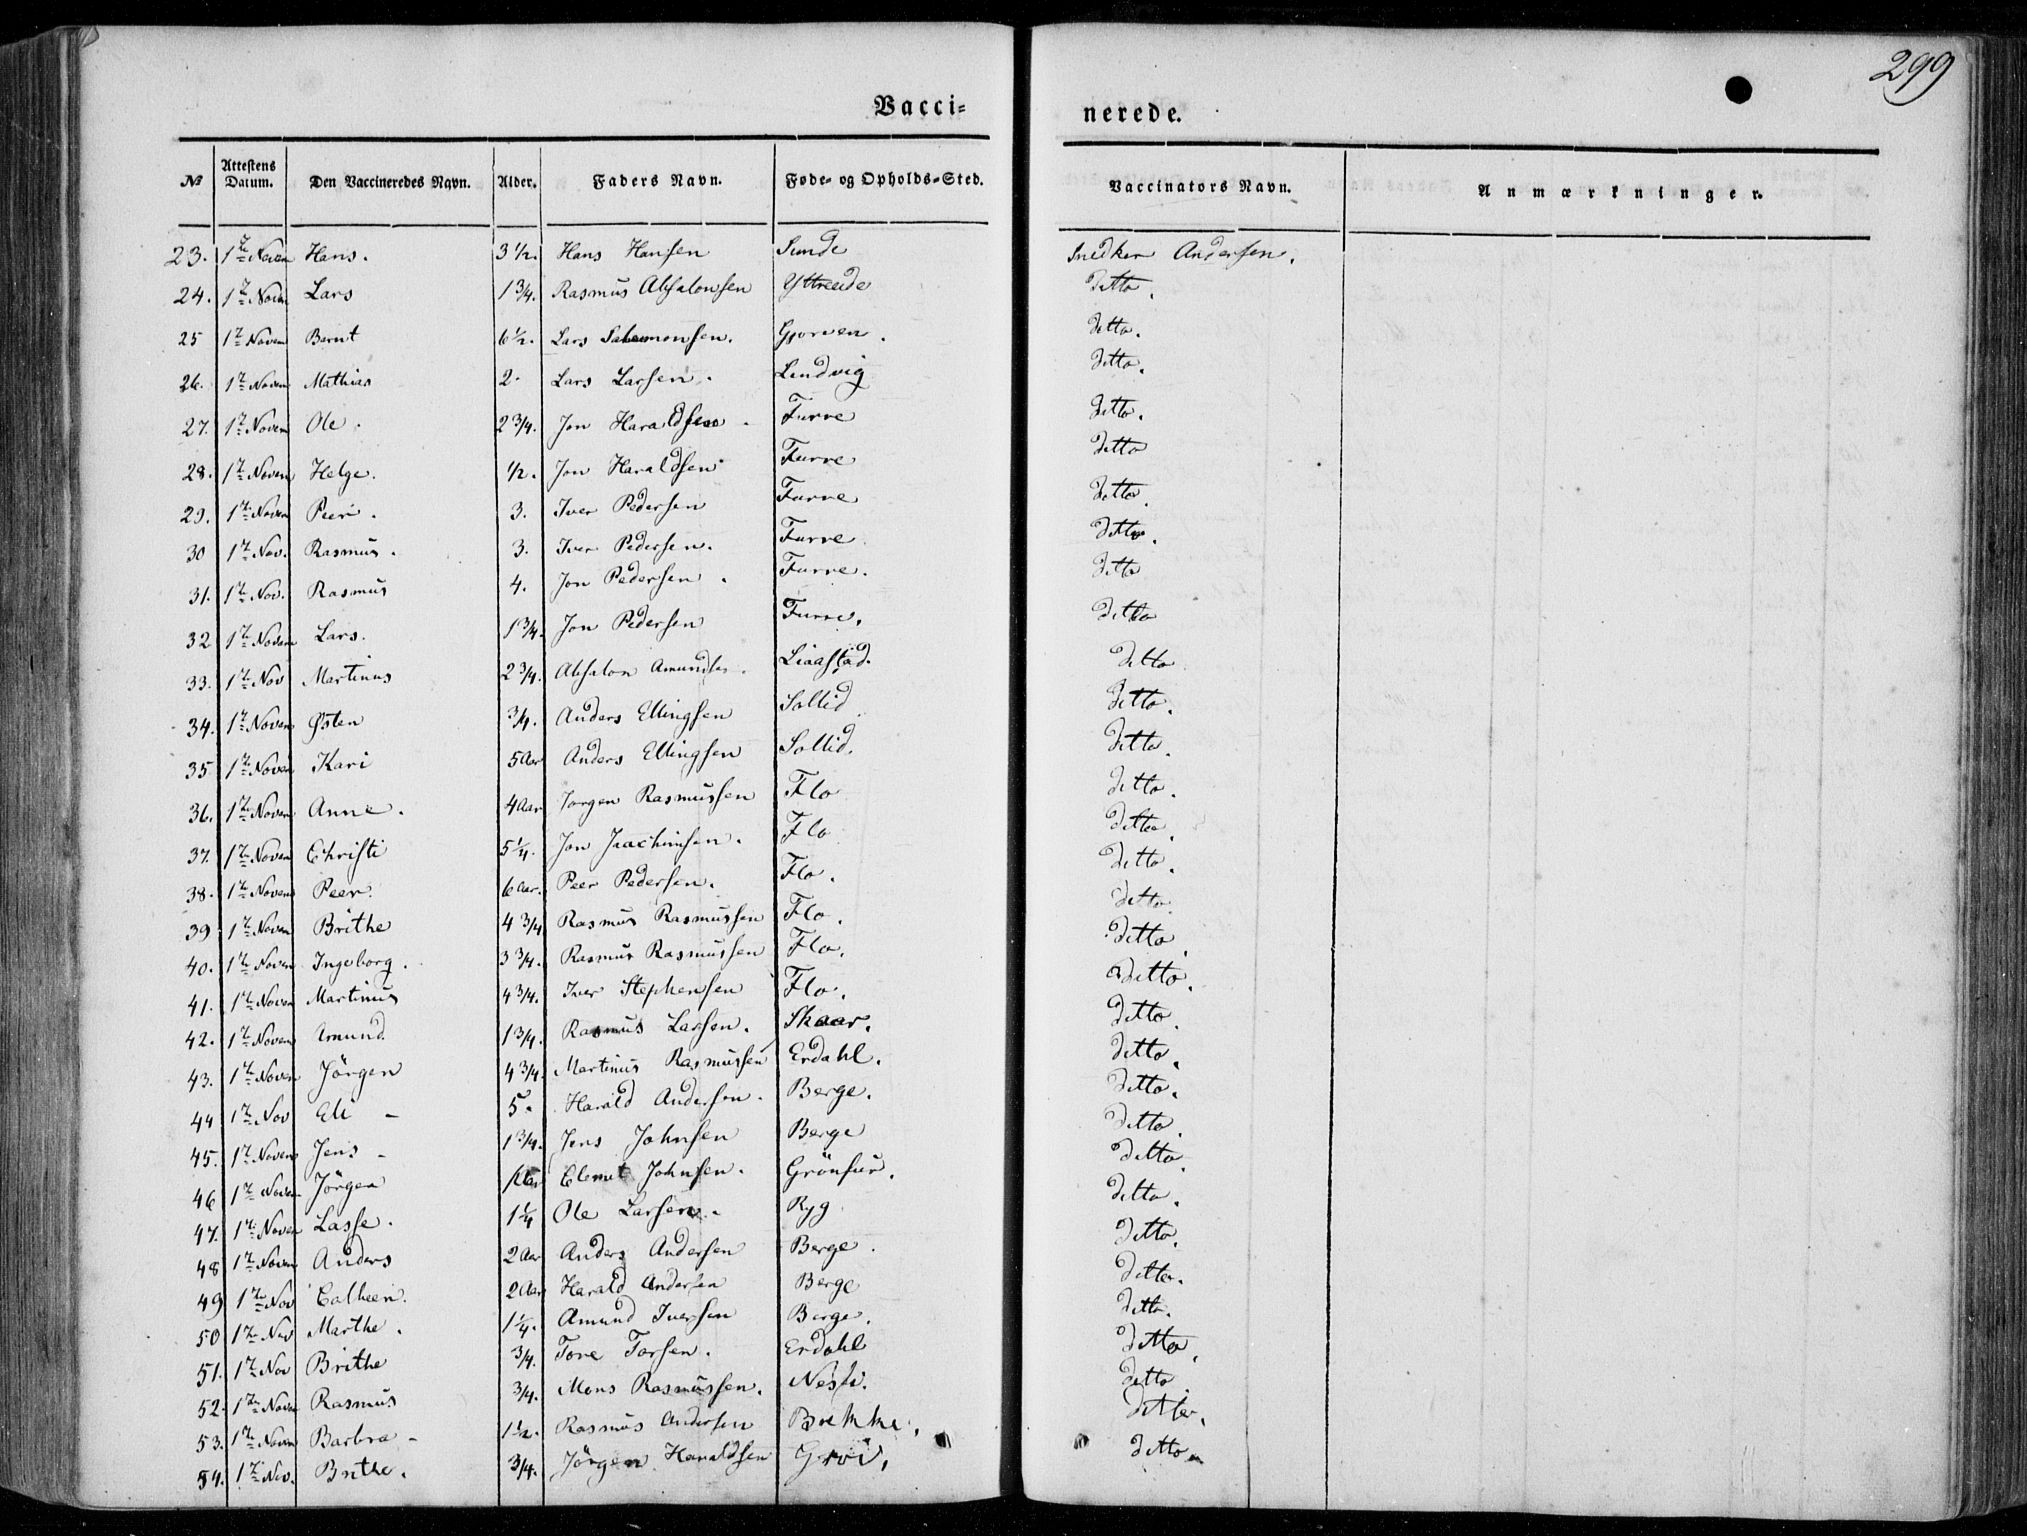 299
Vacci= nerede.
No Attestens Datum. Den Vaccineredes Navn. Alder. Faders Navn. Føde- og Opholds-Sted. Vaccinators Navn. Anmærkninger.
23. 1te Novem Hans. 3 1/2. Hans Hansen Sunde Snedker Andersen.
24. 1te Novem Lars 1 3/4. Rasmus Absalonsen Yttreeide ditto.
25 1te Novem Bernt 6 1/2. Lars Salamonsen. Gjorven. ditto.
26. 1te Novem Mathias 2. Lars Larsen. Lindvig ditto.
27. 1te Novem Ole. 2 3/4. Jon Haraldsen. Furre ditto.
28. 1te Novem Helge. 1/2. Jon Haraldsen Furre ditto
29. 1te Novem Peer. 3. Iver Pedersen Furre ditto.
30 1te Nov. Rasmus. 3. Iver Pedersen. Furre ditto.
31. 1te Nov. Rasmus 4. Jon Pedersen. Furre. ditto
32 1te Novem Lars. 1 3/4. Jon Pedersen Furre. ditto
33. 1te Nov Martinus 2 3/4. Absalon Amundsen. Liaastad. ditto
34. 1te Novem Østen 3/4. Anders Ellingsen Sollid ditto.
35 1te Novem Kari 5 Aar Anders Ellingsen Sollid. ditto.
36. 1te Novem Anne. 4 Aar Jørgen Rasmussen Flo ditto.
37. 1te Novem Christi 5 1/4. Jon Joachimsen. Flo ditto.
38. 1te Novem Peer. 6 Aar. Peer Pedersen. Flo. ditto.
39 1te Novem Brithe 4 3/4 Rasmus Rasmussen Flo. ditto.
40. 1te Novem Ingeborg. 3 3/4. Rasmus Rasmussen Flo. ditto.
41. 1te Novem Martinus 4 3/4. Iver Stephensen Flo. ditto.
42. 1te Novem Amund 1 3/4. Rasmus Larsen. Skaar. ditto.
43. 1te Novem Jörgen 4 3/4. Martinus Rasmussen Erdahl. ditto.
44 1te Nov Eli - 5. Harald Andersen. Berge. ditto.
45. 1te Novem Jens - 1 3/4. Jens Johnsen Berge ditto.
46 1te Novem Jörgen Aar Clemet Johnsen. Grönfur. ditto.
47. 1te Novem Lasse. 1 1/4 Ole Larsen. Ryg ditto.
48 1te Novem Anders 2 Aar Anders Andersen Berge. ditto.
49 1te Nov Cathrin. 2 Aar Harald Andersen Berge ditto.
50 1te Nov Marthe. 1 1/4. Amund Iversen Berge. ditto.
51. 1te Nov Brithe 3/4. Tore Torsen. Erdahl ditto.
52. 1te Novem Rasmus 3/4. Mons Rasmussen. Nesti. ditto
53. 1te Novem Barbra - 1 1/2. Rasmus Andersen Brekke. ditto.
54. 1te Nov. Brithe. 3/4. Jörgen Haraldsen Grov. ditto.